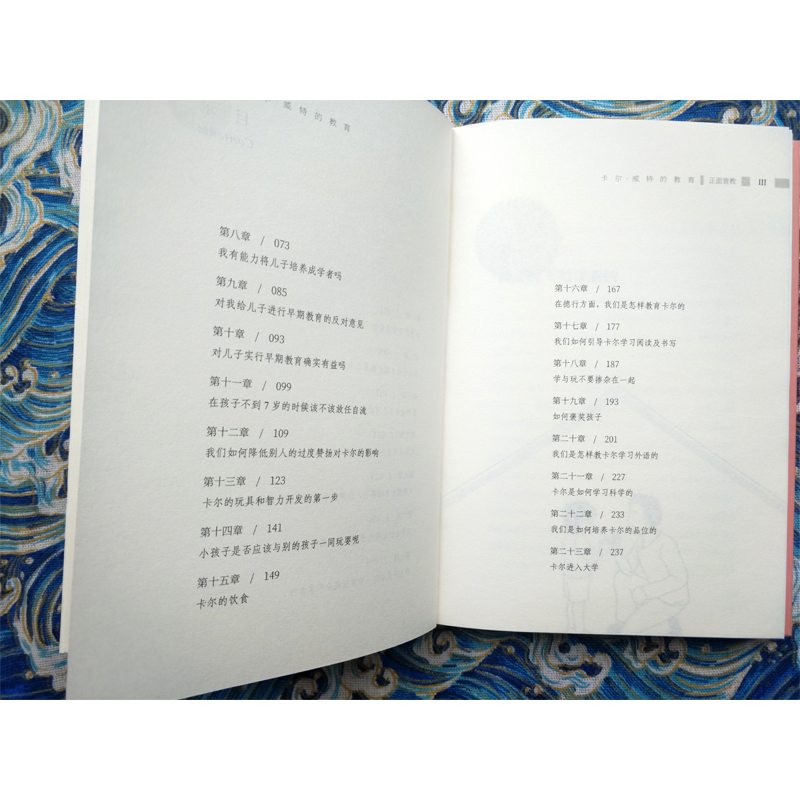 威特的教育
第八章 / 073
我有能力将儿子培养成学者吗
第九章 / 085
对我给儿子进行早期教育的反对意见
第十章 / 093
对儿子实行早期教育确实有益吗
第十一章 / 099
在孩子不到7岁的时候该不该放任自流
第十二章 / 109
我们如何降低别人的过度赞扬对卡尔的影响
第十三章 / 123
卡尔的玩具和智力开发的第一步
第十四章 / 141
小孩子是否应该与别的孩子一同玩耍呢
第十五章 / 149
卡尔的饮食
卡尔·威特的教育 正面管教 III
第十六章 / 167
在德行方面，我们是怎样教育卡尔的
第十七章 / 177
我们如何引导卡尔学习阅读及书写
第十八章 / 187
学与玩不要掺杂在一起
第十九章 / 193
如何褒奖孩子
第二十章 / 201
我们是怎样教卡尔学习外语的
第二十一章 / 227
卡尔是如何学习科学的
第二十二章 / 233
我们是如何培养卡尔的品位的
第二十三章 / 237
卡尔进入大学